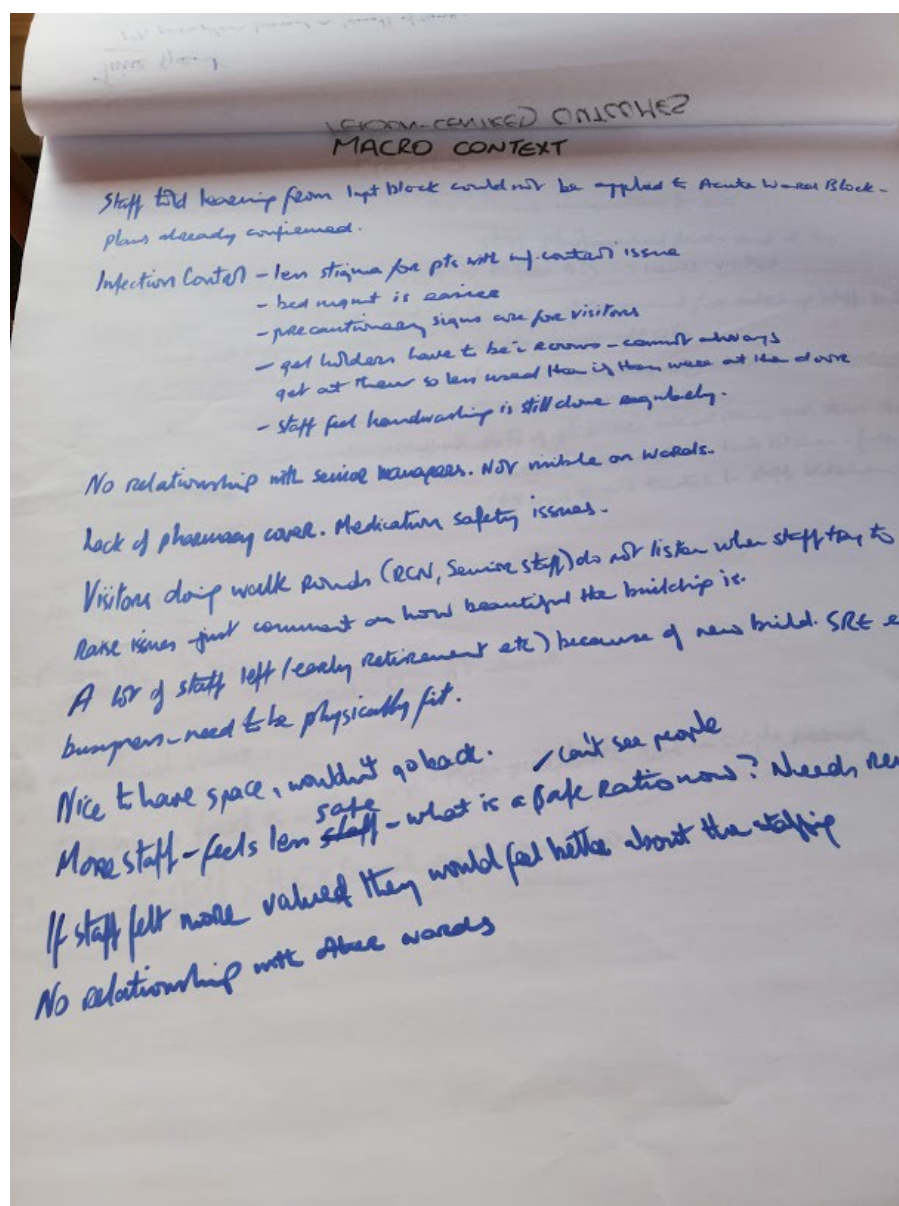 PERSON-CENTRED OUTCOMES
MACRO CONTEXT
Staff told learning from Inpt block could not be applied to Acute Ward Block -
plans already confirmed.
Infection Control - less stigma for pts with inf. control issue
- bed mgmt is easier
- precautionary signs are for visitors
- gel holders have to be in rooms - cannot always
get at them so less used than if they were at the door
- staff feel handwashing is still done regularly.
No relationship with senior managers. Not visible on wards.
Lack of pharmacy cover. Medication safety issues.
Visitors doing walk rounds (RCN, Senior staff) do not listen when staff try to
raise issues - just comment on how beautiful the building is.
A lot of staff left (early retirement etc) because of new build. SRE
- need to be physically fit.
Nice to have space, wouldn't go back.
- can't see people
More staff - feels less safe - what is a safe ratio now? Needs
If staff felt more valued they would feel better about the staffing
No relationship with other wards